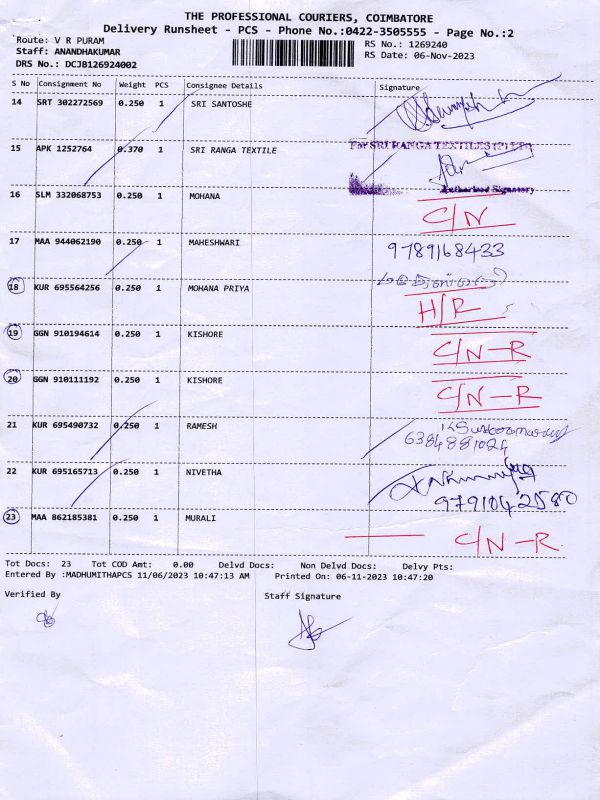 THE PROFESSIONAL COURIERS, COIMBATORE
Delivery Runsheet - PCS - Phone No.:0422-3505555 - Page No.:2
Route: V R PURAM
RS No.: 1269240
Staff: ANANDHAKUMAR
RS Date: 06-Nov-2023
DRS No.: DCJB126924002
S No Consignment No Weight PCS Consignee Details Signature
14 SRT 302272569 0.250 1 SRI SANTOSHE
15 APK 1252764 0.370 1 SRI RANGA TEXTILE For SRI RANGA TEXTILES (P) LTD
Authorised Signatory
16 SLM 332068753 0.250 1 MOHANA C/N
17 MAA 944062190 0.250 1 MAHESHWARI 9789168433
18 KUR 695564256 0.250 1 MOHANA PRIYA H/R
19 GGN 910194614 0.250 1 KISHORE C/N-R
20 GGN 910111192 0.250 1 KISHORE C/N-R
21 KUR 695490732 0.250 1 RAMESH 6384881024
22 KUR 695165713 0.250 1 NIVETHA 9791042580
23 MAA 862185381 0.250 1 MURALI C/N-R
Tot Docs: 23 Tot COD Amt: 0.00 Delvd Docs: Non Delvd Docs: Delvy Pts:
Entered By :MADHUMITHAPCS 11/06/2023 10:47:13 AM Printed On: 06-11-2023 10:47:20
Verified By Staff Signature